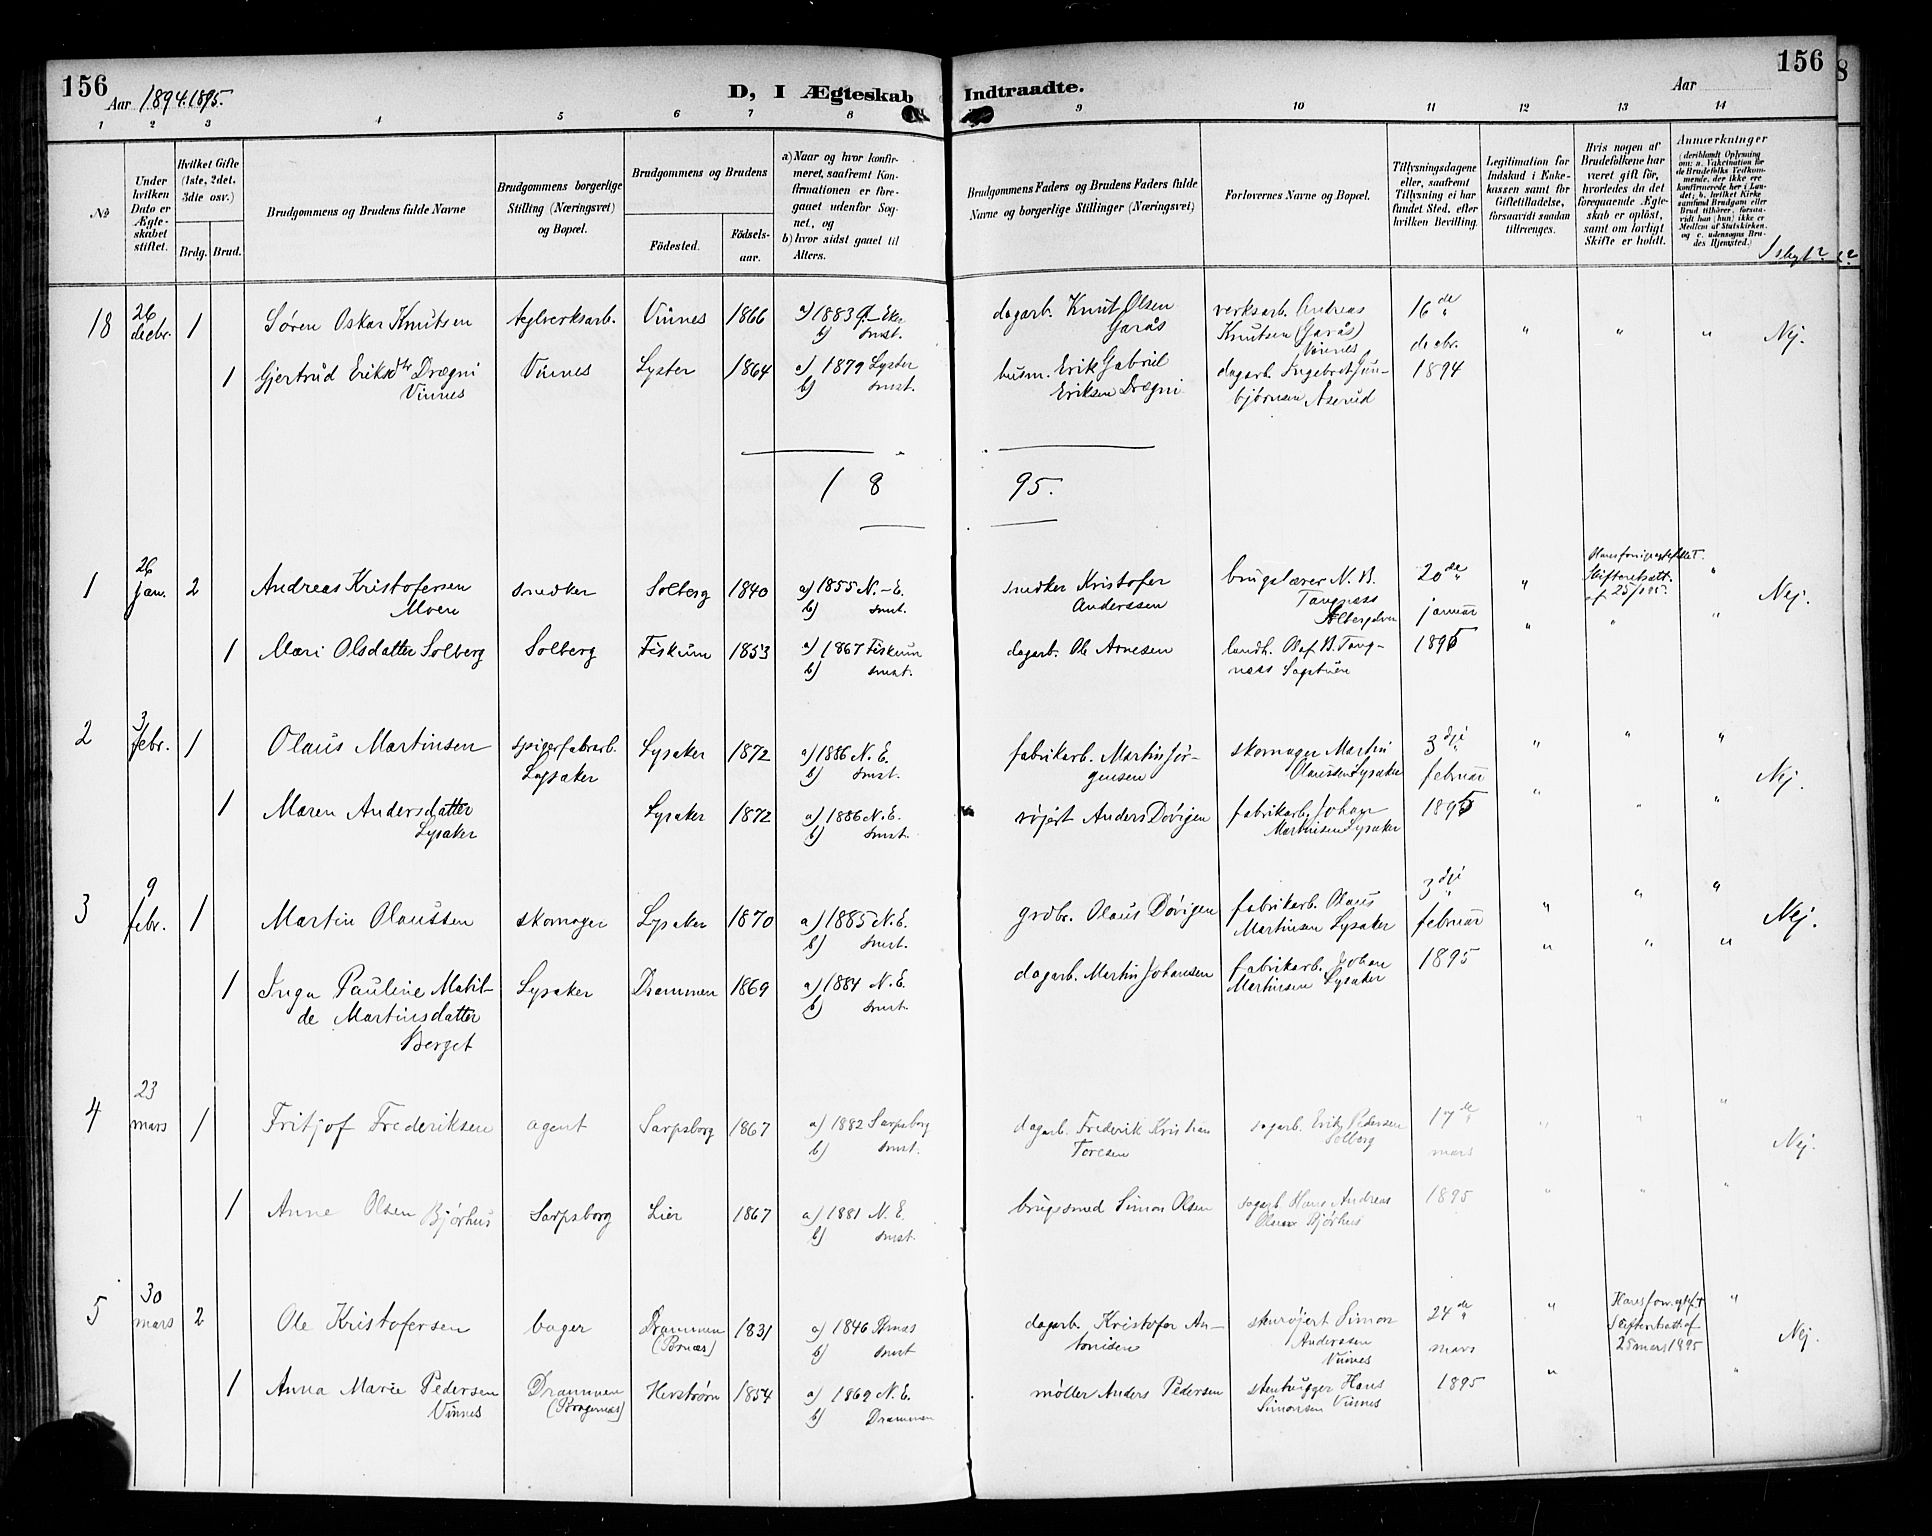 156
Aar 1894.1895.
D, I Ægteskab Indtraadte.
Aar
156
1 2 3 4 5 6 7 8 9 10 11 12 13 14
No
Under hvilken Dato er Ægteskabet stiftet.
Hvilket Gifte (1ste, 2det, 3die osv.)
Brdg. Brud.
Brudgommens og Brudens fulde Navne
Brudgommens borgerlige Stilling (Næringsvei) og Bopæl.
Brudgommens og Brudens
Födested.
Födsels-aar.
a) Naar og hvor konfirmeret, saafremt Konfirmationen er foregaaet udenfor Sognet, og
b) hvor sidst gaaet til Alters.
Brudgommens Faders og Brudens Faders fulde Navne og borgerlige Stillinger (Næringsvei)
Forlovernes Navne og Bopæl.
Tillysningsdagene eller, saafremt Tillysning ei har fundet Sted, efter hvilken Bevilling.
Legitimation for Indskud i Enkekassen samt for Giftetilladelse, forsaavidt saadan tiltrænges.
Hvis nogen af Brudefolkene har været gift før, hvorledes da det foregaaende Ægteskab er oplöst, samt om lovligt Skifte er holdt.
Anmærkninger
18 26 decbr. 1 Søren Oskar Knutsen teglverksarb. Vinnes 1866 a) 1883 Ø. Eker
b) smst.
dagarb. Knut Olsen Garås
verksarb. Andreas Knutsen (Garås) Vinnes
16de decbr. 1894 " " " Nej.
1 Gjertrud Eriksdtr Drægni Vinnes
Vinnes Lyster 1864 a) 1879 Lyster
b) smst.
husm. Erik Gabriel Eriksen Drægni
dagarb. Ingebret Gunbjørnsen Aserud
18 95.
1 26 jan. 2 Andreas Kristofersen Moen
snedker Solberg 1840 a) 1855 N.-E.
b) smst.
snedker Kristofer Anderssen
brugslærer N. B. Tangness Solbergelven
20de januar 1895 "
Skifteretsatt. af 25/1 95. " Nej.
1 Mari Olsdatter Solberg Solberg Fiskum 1853 a) 1867 Fiskum
b) smst.
dagarb. Ole Arnesen
landh. Olaf B. Tangness Sagstuen
" " "
2 3 febr. 1 Olaus Martinsen spigerfabrarb. Lysaker
Lysaker 1872 a) 1886 N. E.
b) smst.
fabrikarb. Martin Jørgensen
skomager Martin Olaussen Lysaker
3dje februar 1895 " " " Nej.
1 Maren Andersdatter Lysaker
Lysaker 1872 a) 1886 N. E.
b) smst.
røjert Anders Døvigen
fabrikarb. Johan Martinsen Lysaker
" " "
3 9 febr. 1 Martin Olaussen skomager Lysaker 1870 a) 1885 N. E.
b) smst.
grdbr. Olaus Døvigen
fabrikarb. Olaus Martinsen Lysaker
3dje februar 1895 " " " Nej.
1 Inga Pauline Matilde Martinsdatter Berget
Lysaker Drammen 1869 a) 1884 N. E.
b) smst.
dagarb. Martin Johansen
fabrikarb. Johan Martinsen Lysaker
" " "
4 23 mars 1 Fritjof Frederiksen agent Sarpsborg 1867 a) 1882 Sarpsborg
b) smst.
dagarb. Frederik Kristian Toresen
sagarb. Erik Pedersen Solberg
17de mars 1895 " " " Nej.
1 Anne Olsen Bjørhus Sarpsborg Lier 1867 a) 1881 N. E.
b) smst.
brugssmed Simon Olsen
sagarb. Hans Andreas Olsen Bjørhus
" " "
5 30 mars 2 Ole Kristofersen bager Drammen 1831 a) 1846
b) smst
dagarb. Kristofer Antonisen
skurøjert Simon Anderssen Vinnes
24de mars 1895 "
Skifteratt af 25 mars 1895 " Nej.
1 Anna Marie Pedersen Vinnes
Drammen (Bragernæs)
1854 a) 1869 N. E.
b) Drammen
møller Anders Pedersen
stenhugger Hans Simonsen Vinnes
" "